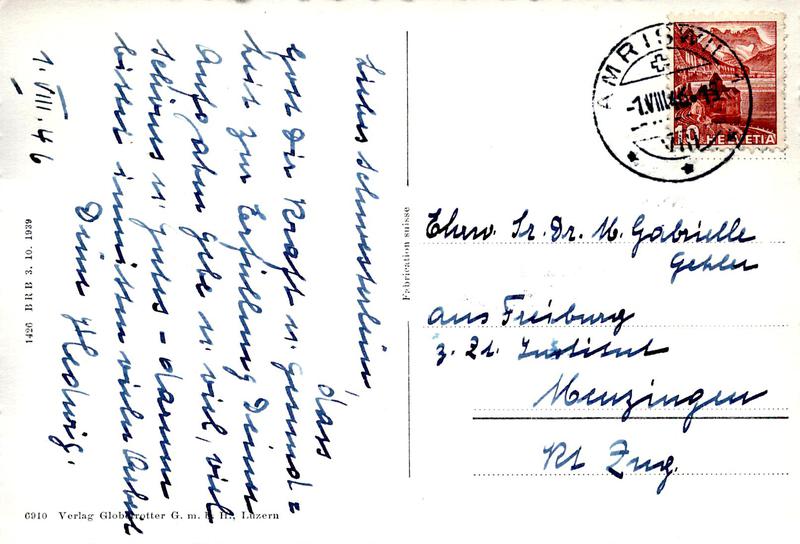 Liebes Schwesterlein,
dass
Gott Dir Kraft u. Gesund=
heit zur Erfüllung Deiner
Aufgaben gebe u. viel, viel
schönes u. gutes - darum
bittet inmitten vieler Arbeit
Deine Hedwig.
1. VIII. 46
1426 BRB 3. 10. 1939
6910 Verlag Globetrotter G. m. b. H., Luzern
Fabrication suisse
AMRISWIL
-1.VIII.46.-
10 HELVETIA
Ehrw. Sr. Dr. M. Gabrielle
aus Freiburg
z. Zt. Institut
Menzingen
Kt Zug.